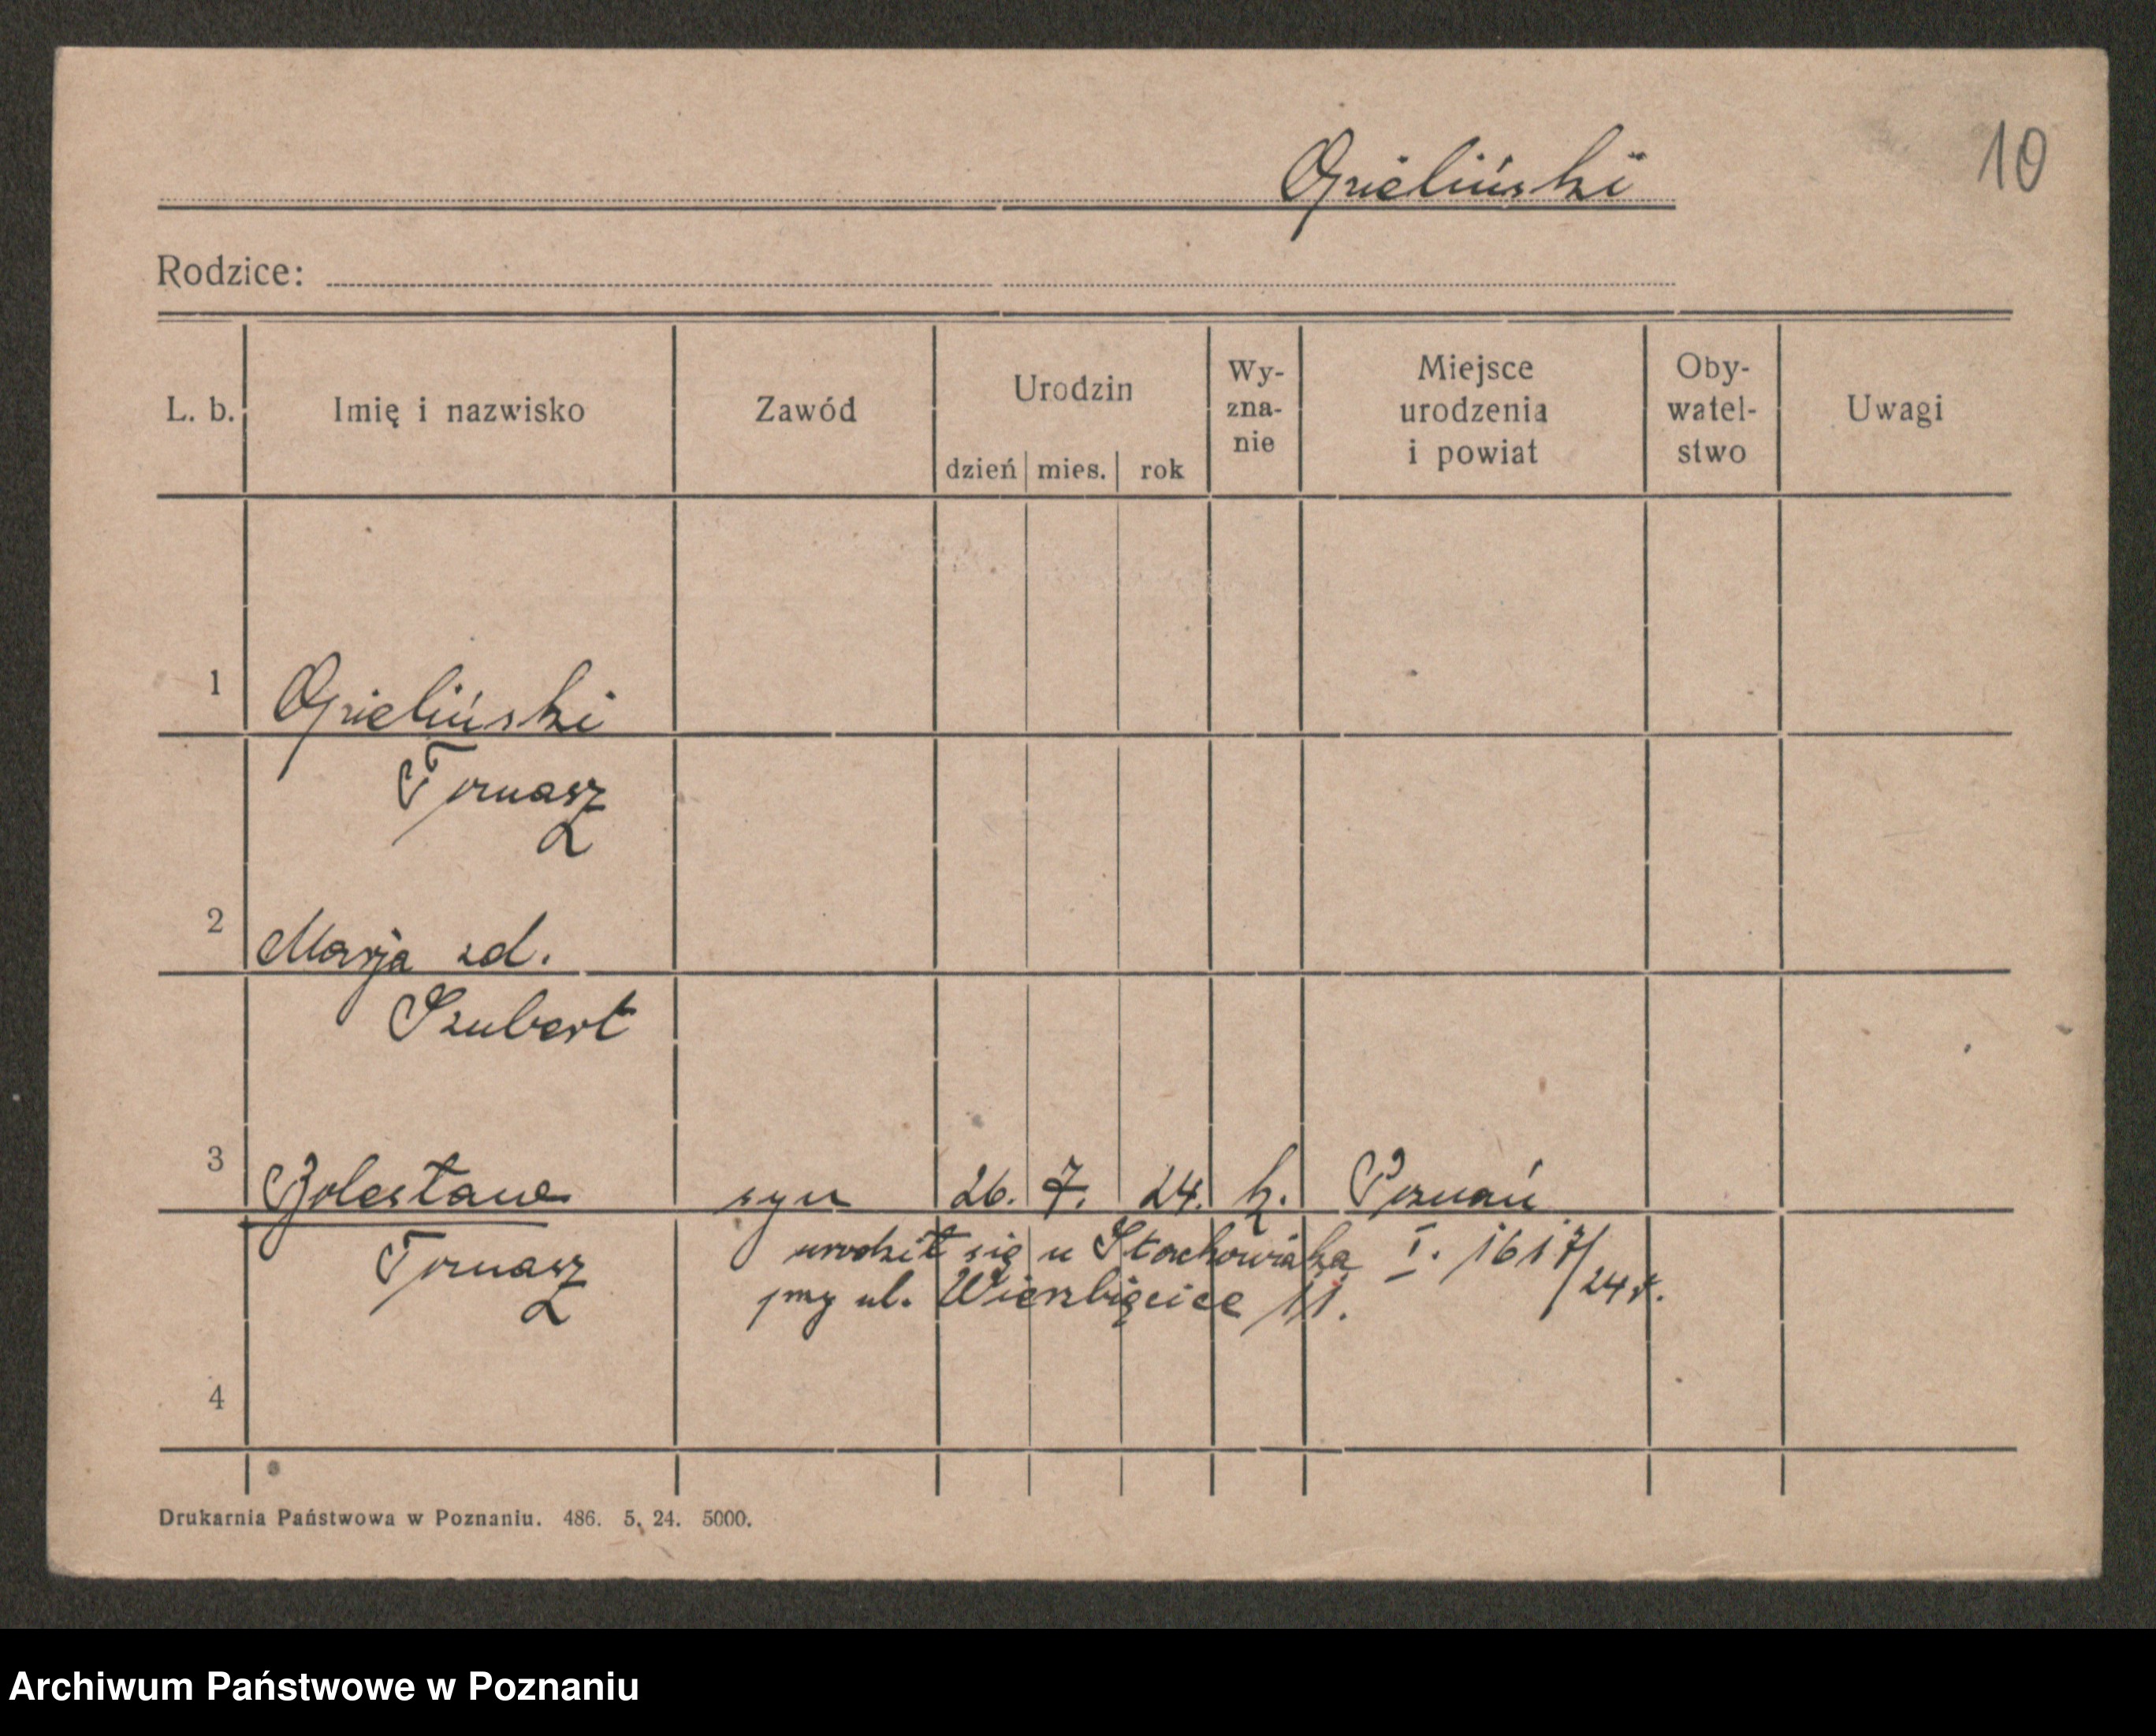 10
Opieliński
Rodzice:
L. b.
Imię i nazwisko
Zawód
Urodzin
dzień mies. rok
Wy-
zna-
nie
Miejsce
urodzenia
i powiat
Oby-
watel-
stwo
Uwagi
1 Opieliński
Tomasz
2 Marja zd.
Szubert
3 Bolesław syn 26. 7. 24. k. Poznań
Tomasz
urodził się u Stachowiaka I. 1617/24
przy ul. Wierzbięcice 11.
4
Drukarnia Państwowa w Poznaniu. 486. 5. 24. 5000.
Archiwum Państwowe w Poznaniu